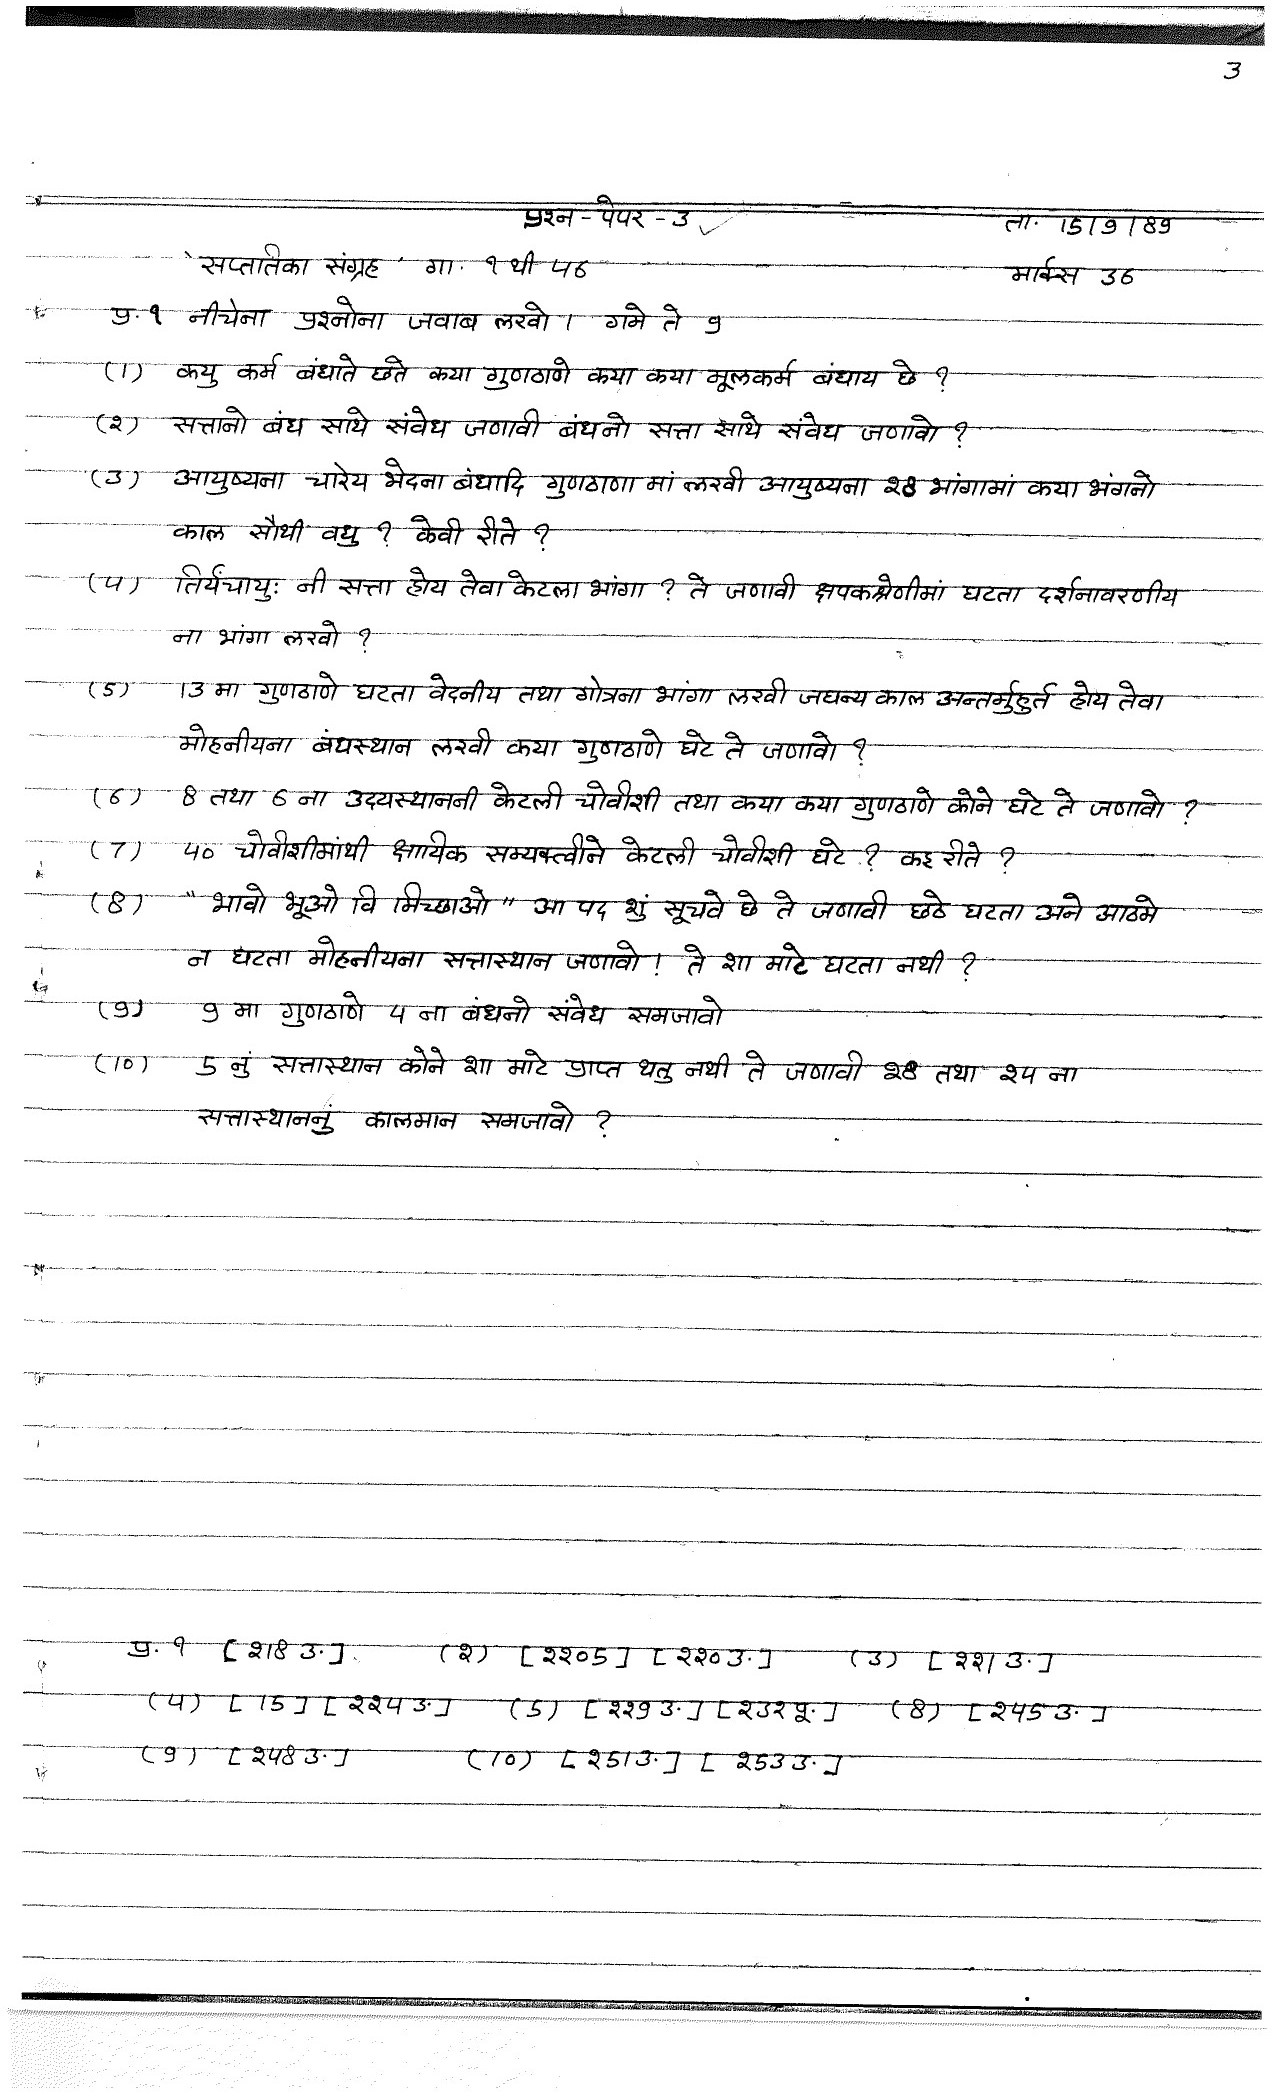 3
प्रश्न - पेपर - 3 ✓ ता. 15/9/89
'सप्ततिका संग्रह' गा. १ थी ५६ मार्क्स 36
प्र. १ नीचेना प्रश्नोना जवाब लखो। गमे ते 9
(1) कयु कर्म बंधाते छते कया गुणठाणे कया कया मूलकर्म बंधाय छे ?
(२) सत्तानो बंध साथे संवेध जणावी बंधनो सत्ता साथे संवेध जणावो ?
(3) आयुष्यना चारेय भेदना बंधादि गुणठाणा मां लखी आयुष्यना २8 भांगामां कया भंगनो
काल सौथी वधु ? केवी रीते ?
(५) तिर्यंचायुः नी सत्ता होय तेवा केटला भांगा ? ते जणावी क्षपकश्रेणीमां घटता दर्शनावरणीय
ना भांगा लखो ?
(5) 13 मा गुणठाणे घटता वेदनीय तथा गोत्रना भांगा लखी जघन्य काल अन्तर्मुहुर्त होय तेवा
मोहनीयना बंधस्थान लखी कया गुणठाणे घटे ते जणावो ?
(6) 8 तथा 6 ना उदयस्थाननी केटली चोवीशी तथा कया कया गुणठाणे कोने घटे ते जणावो ?
(7) ५० चोवीशीमांथी क्षायिक सम्यक्त्वीने केटली चोवीशी घटे ? कइ रीते ?
(8) "भावो भूओ वि मिच्छाओ" आ पद शुं सूचवे छे ते जणावी छठे घटता अने आठमे
न घटता मोहनीयना सत्तास्थान जणावो ! ते शा माटे घटता नथी ?
(9) 9 मा गुणठाणे ५ ना बंधनो संवेध समजावो
(10) 5 नुं सत्तास्थान कोने शा माटे प्राप्त थतु नथी ते जणावी २8 तथा २५ ना
सत्तास्थाननुं कालमान समजावो ?
प्र. १ [२18 उ.] (२) [२२०5] [२२० उ.] (3) [२२1 उ.]
(५) [15] [२२५ उ.] (5) [२२9 उ.] [२3२ पू.] (8) [२५5 उ.]
(9) [२५8 उ.] (10) [२51 उ.] [२53 उ.]